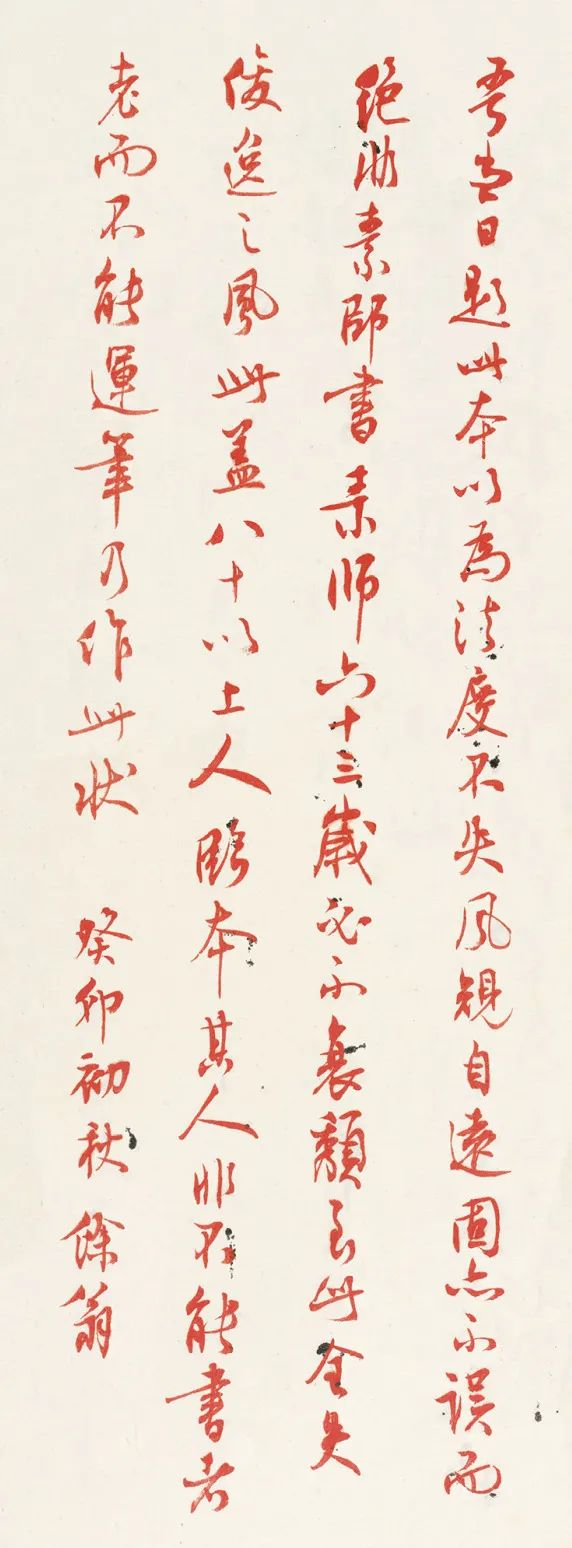 吾當日題此本以為法度不失風規自遠固亦不誤而
絕非素師書素師六十三歲必不衰頹至此全失
俊逸之風此蓋八十以上人臨本其人非不能書者
老而不能運筆乃作此狀 癸卯初秋 餘翁